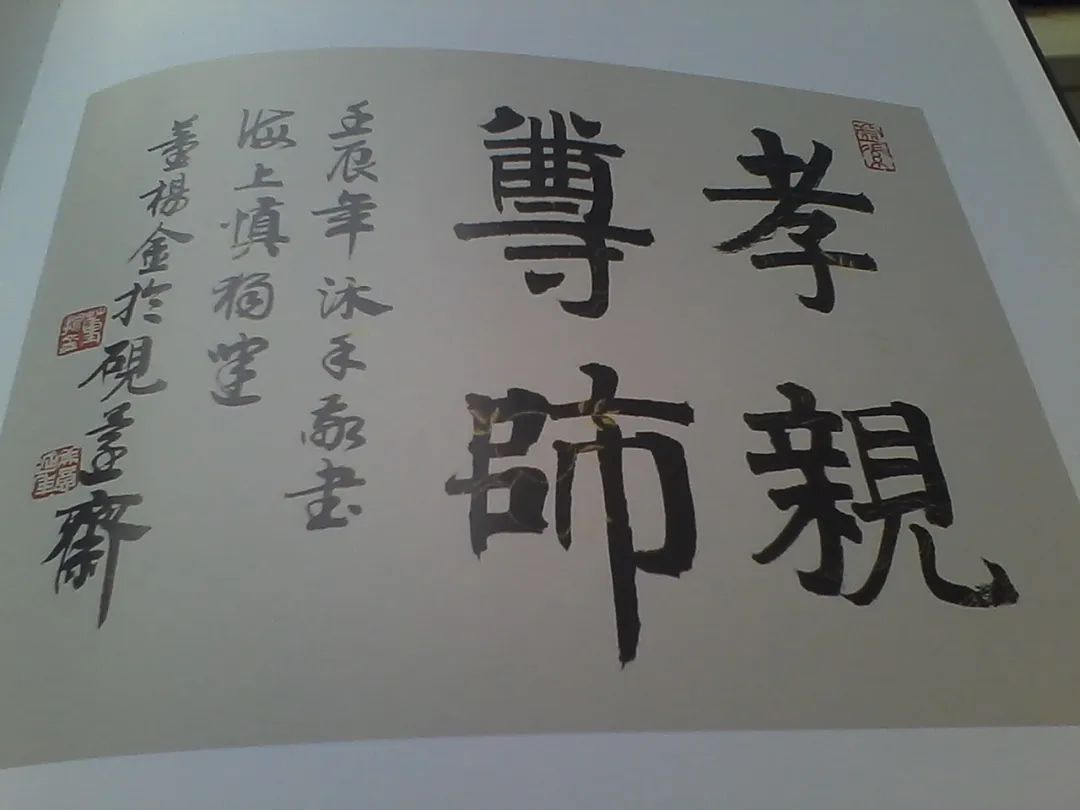 孝親
尊師
壬辰年泳手敬書
海上慎獨
董楊金於硯蓬齋